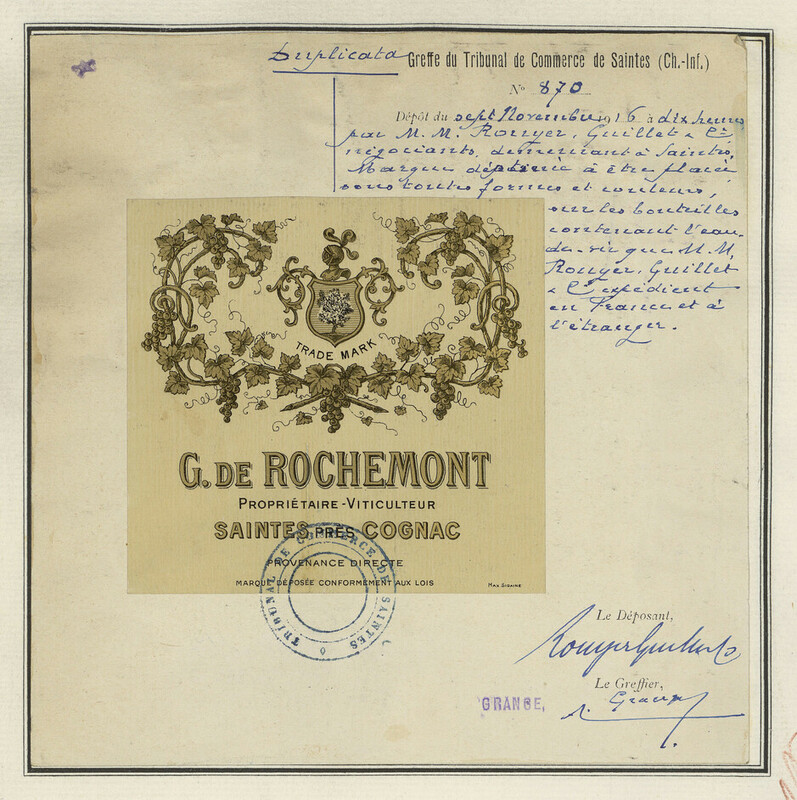 Duplicata Greffe du Tribunal de Commerce de Saintes (Ch.-Inf.)
N° 870
Dépôt du sept Novembre 1916 à dix heures
par M. M. Rouyer, Guillet & Cie
négociants, demeurant à Saintes,
Marque destinée à être placée
sous toutes formes et couleurs,
sur les bouteilles
contenant l'eau-
de-vie que M. M.
Rouyer, Guillet
& Cie expédient
en France et à
l'étranger.
TRADE MARK
G. DE ROCHEMONT
PROPRIÉTAIRE-VITICULTEUR
SAINTES PRÈS COGNAC
PROVENANCE DIRECTE
MARQUE DÉPOSÉE CONFORMÉMENT AUX LOIS
MAX SIRAINE
TRIBUNAL DE COMMERCE DE SAINTES
Le Déposant,
Rouyer Guillet & Co
Le Greffier,
GRANGE,